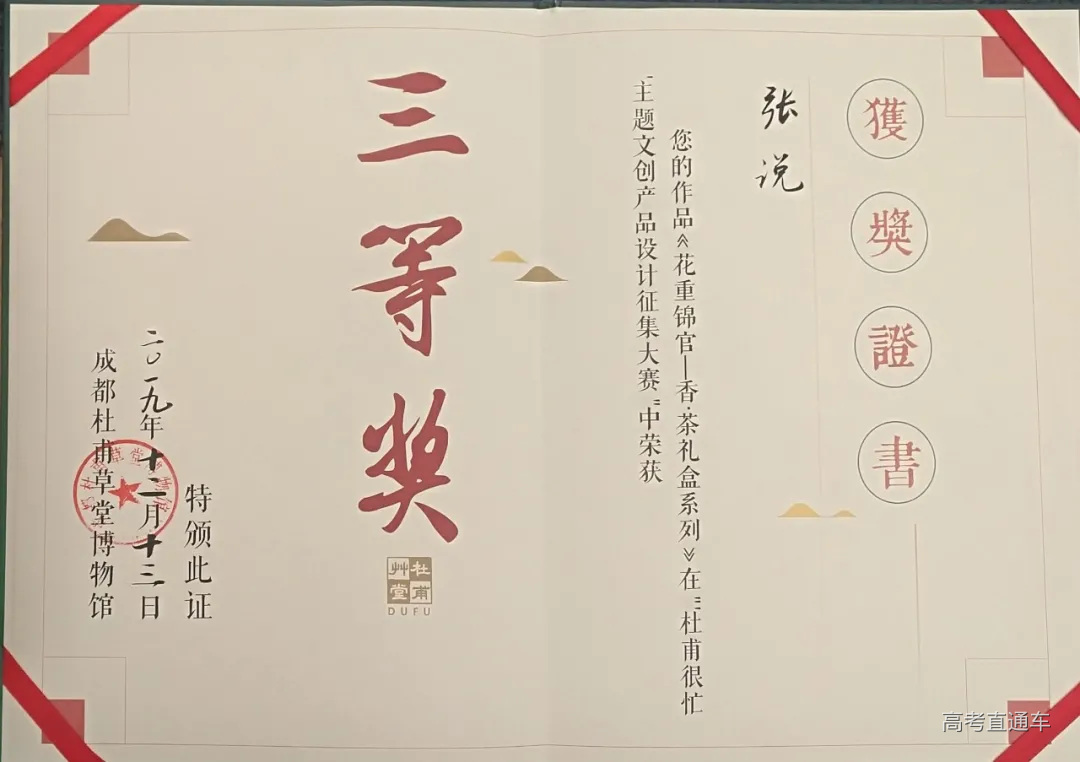 獲獎證書
张说
您的作品《花重锦官—香·茶礼盒系列》在“杜甫很忙
”主题文创产品设计征集大赛“中荣获
三等奖
杜甫
艸堂
DUFU
特颁此证
二〇一九年十二月十三日
成都杜甫草堂博物馆
高考直通车